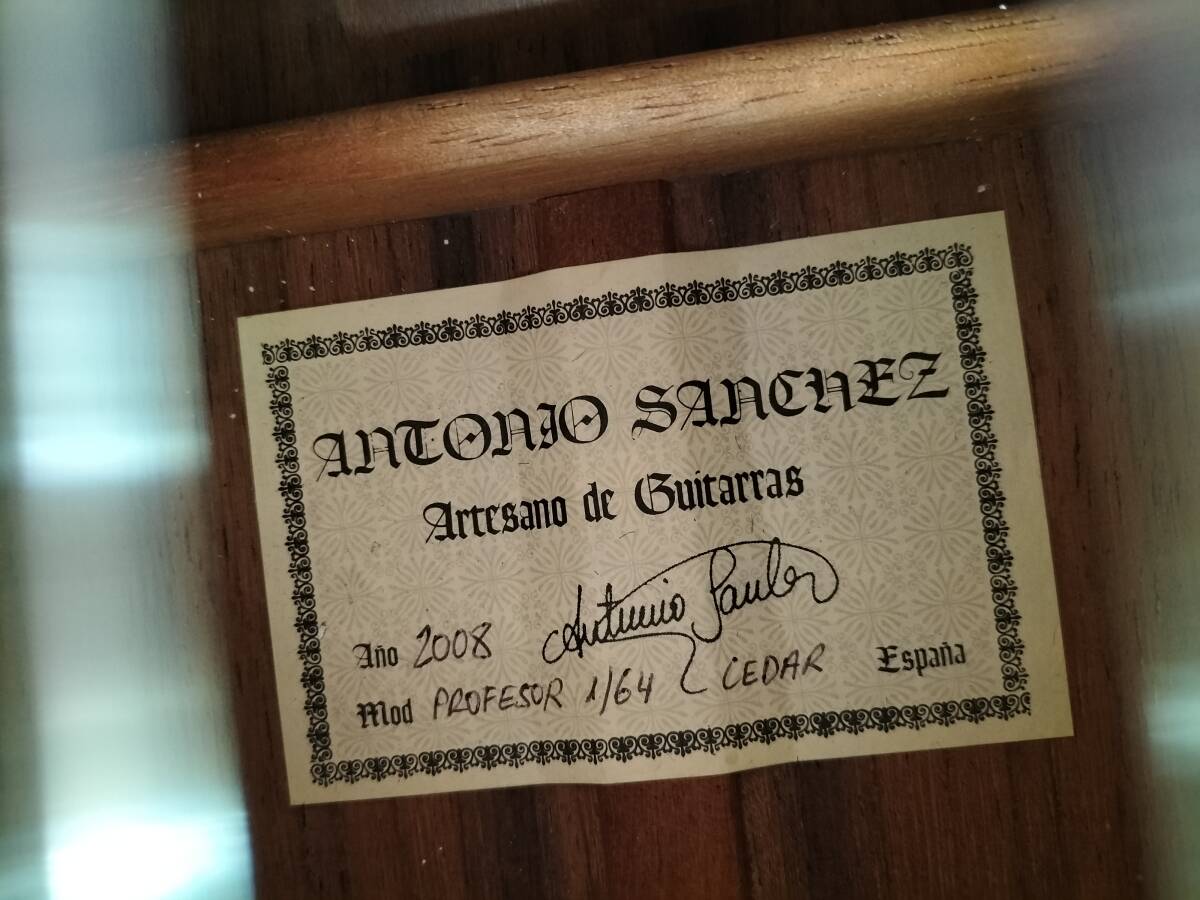 ANTONIO SANCHEZ
Artesano de Guitarras
Antonio Sanchez
Año 2008
Mod PROFESOR 1/64 CEDAR España